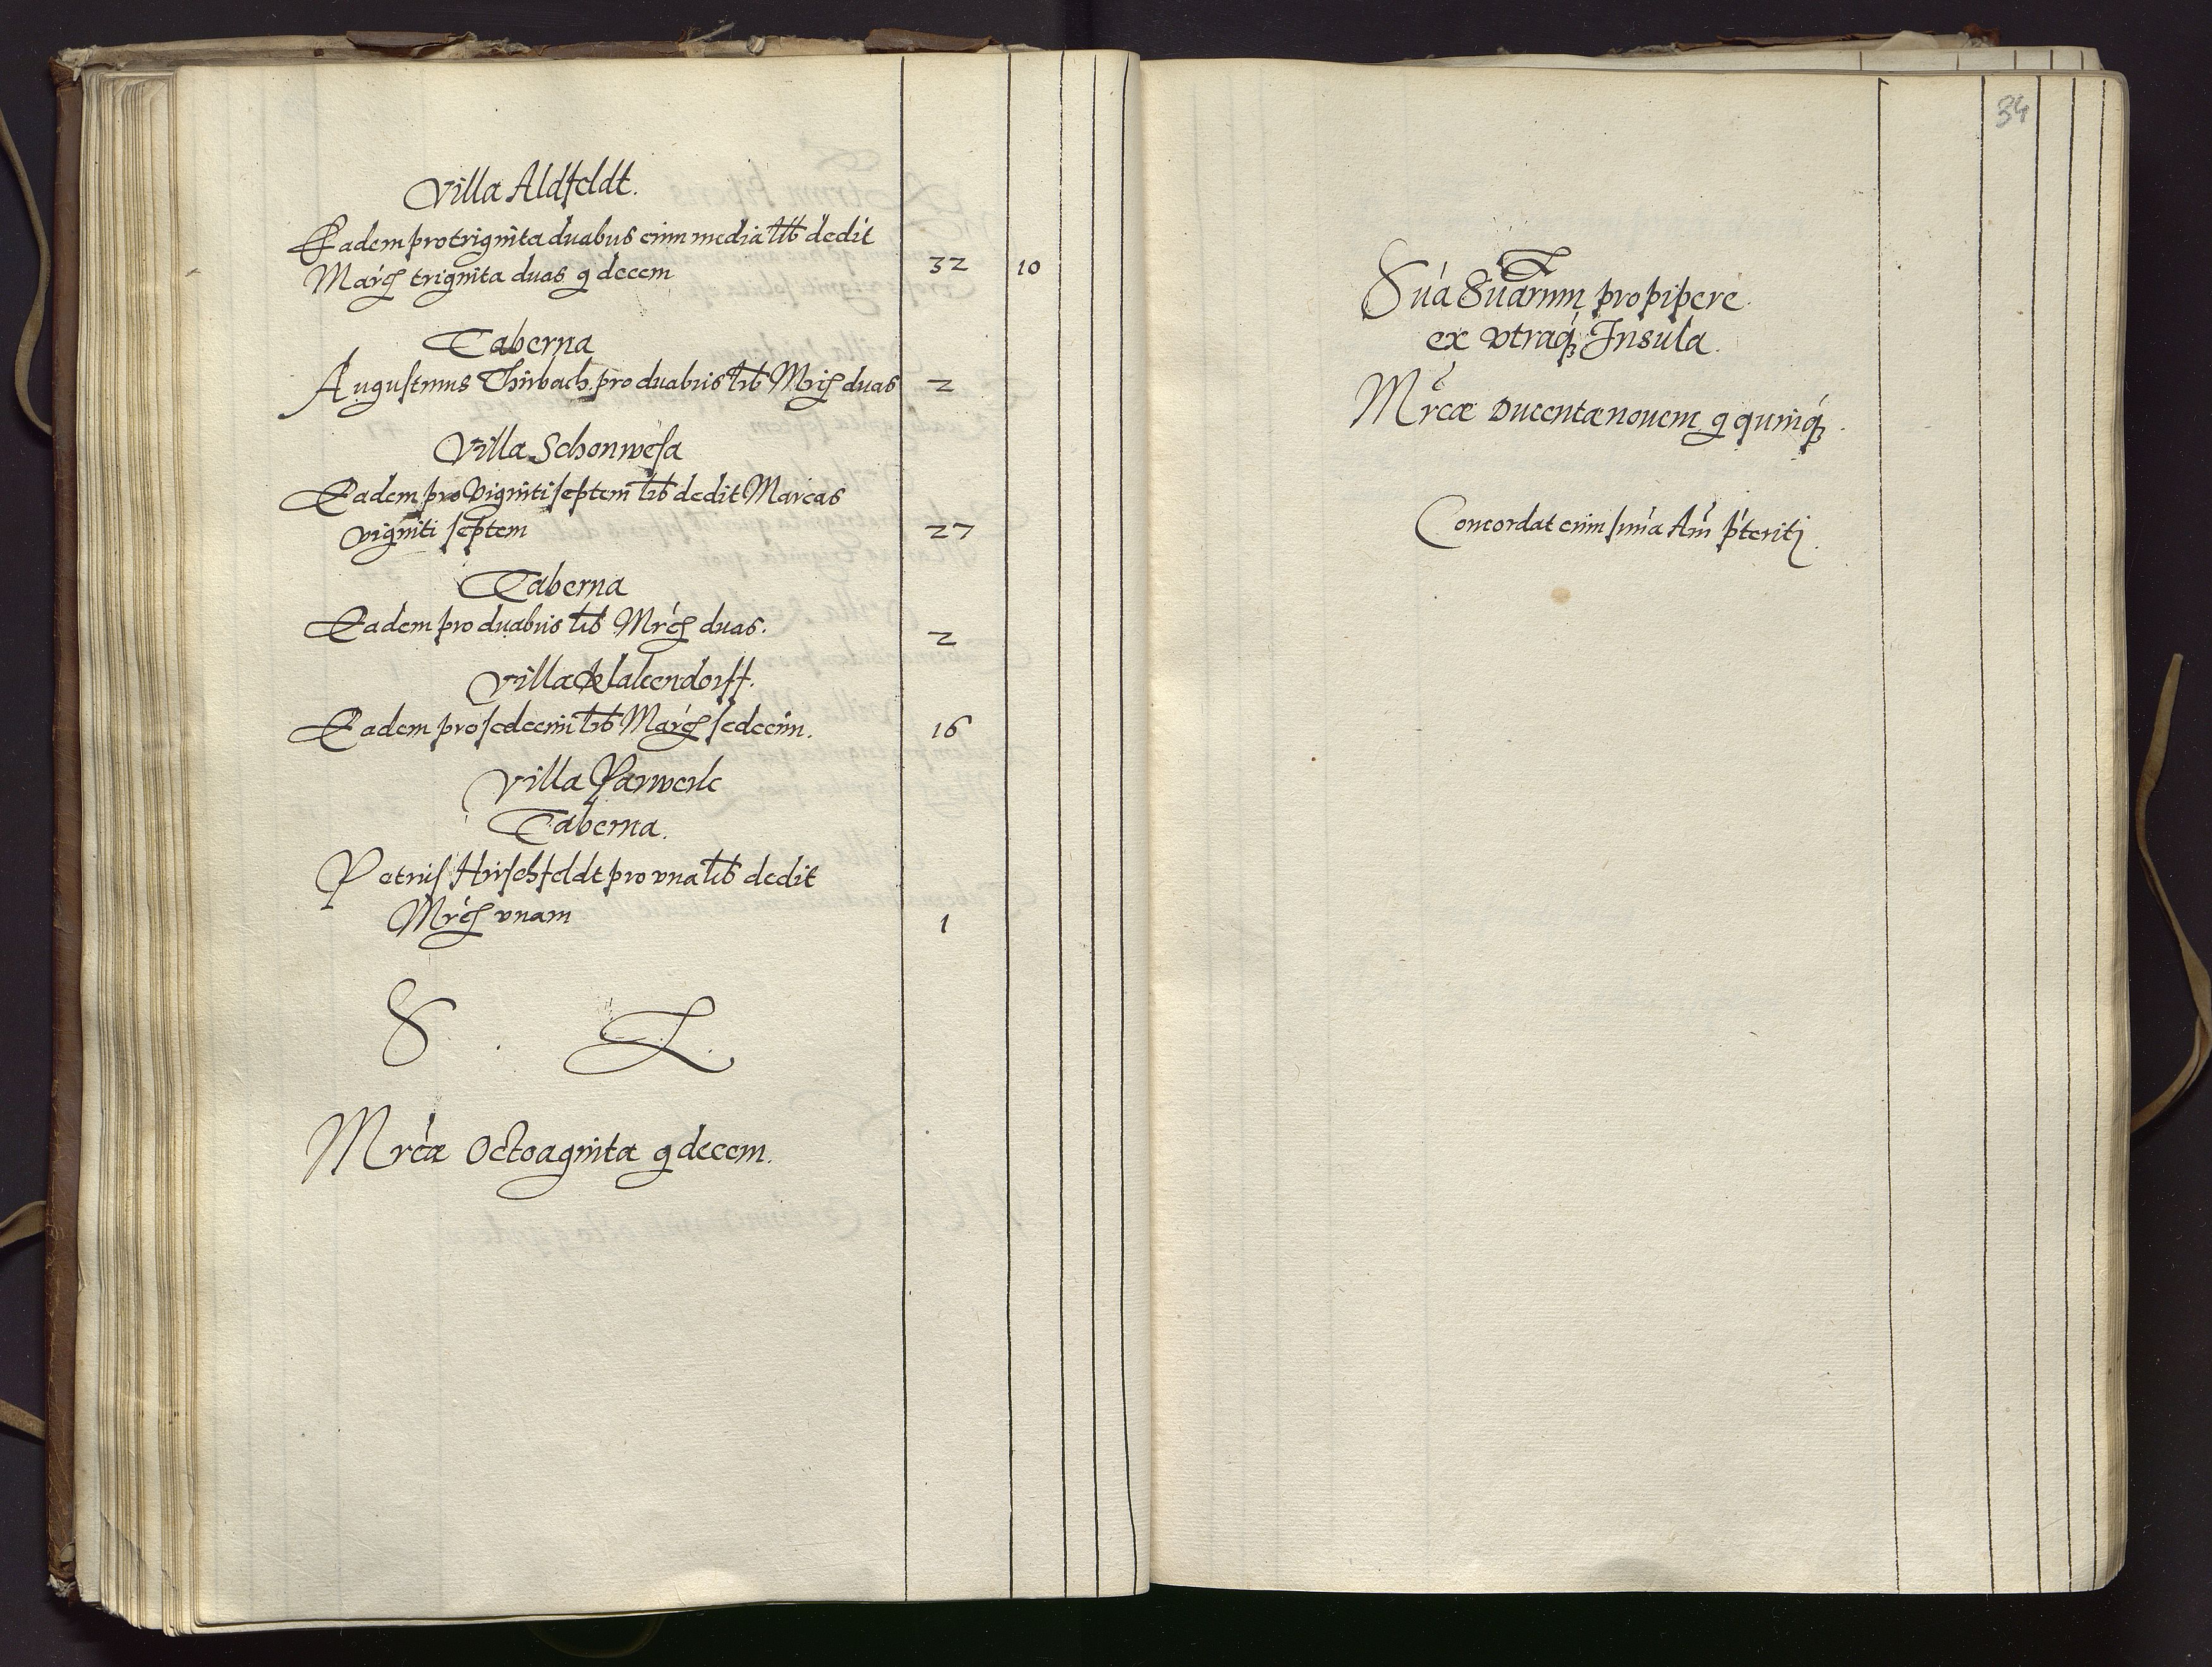 Villa Aldfeldt.
Eadem pro triginta duabus cum media lib dedit
Marcs triginta duas g decem 32 10
Taberna
Augustinus Thirbach pro duabus lib Mrcs duas 2
Villa Schonwesa
Eadem pro Viginti septem lib dedit Marcas
viginti septem 27
Taberna
Eadem pro duabus lib Mrcs duas. 2
Villa Klakendorff.
Eadem pro sedecim lib Marcs sedecim. 16
Villa Parwerk
Taberna.
Petrus Hirschfeldt pro vna lib dedit
Mrcs vnam 1
S L
Mrcæ Octoaginta g decem.
34
Sūa Suārum pro pipere
ex vtraq; Insula.
Mrcæ Ducentæ nouem g quinq;.
Concordat cum sūma Am p̄teriti.